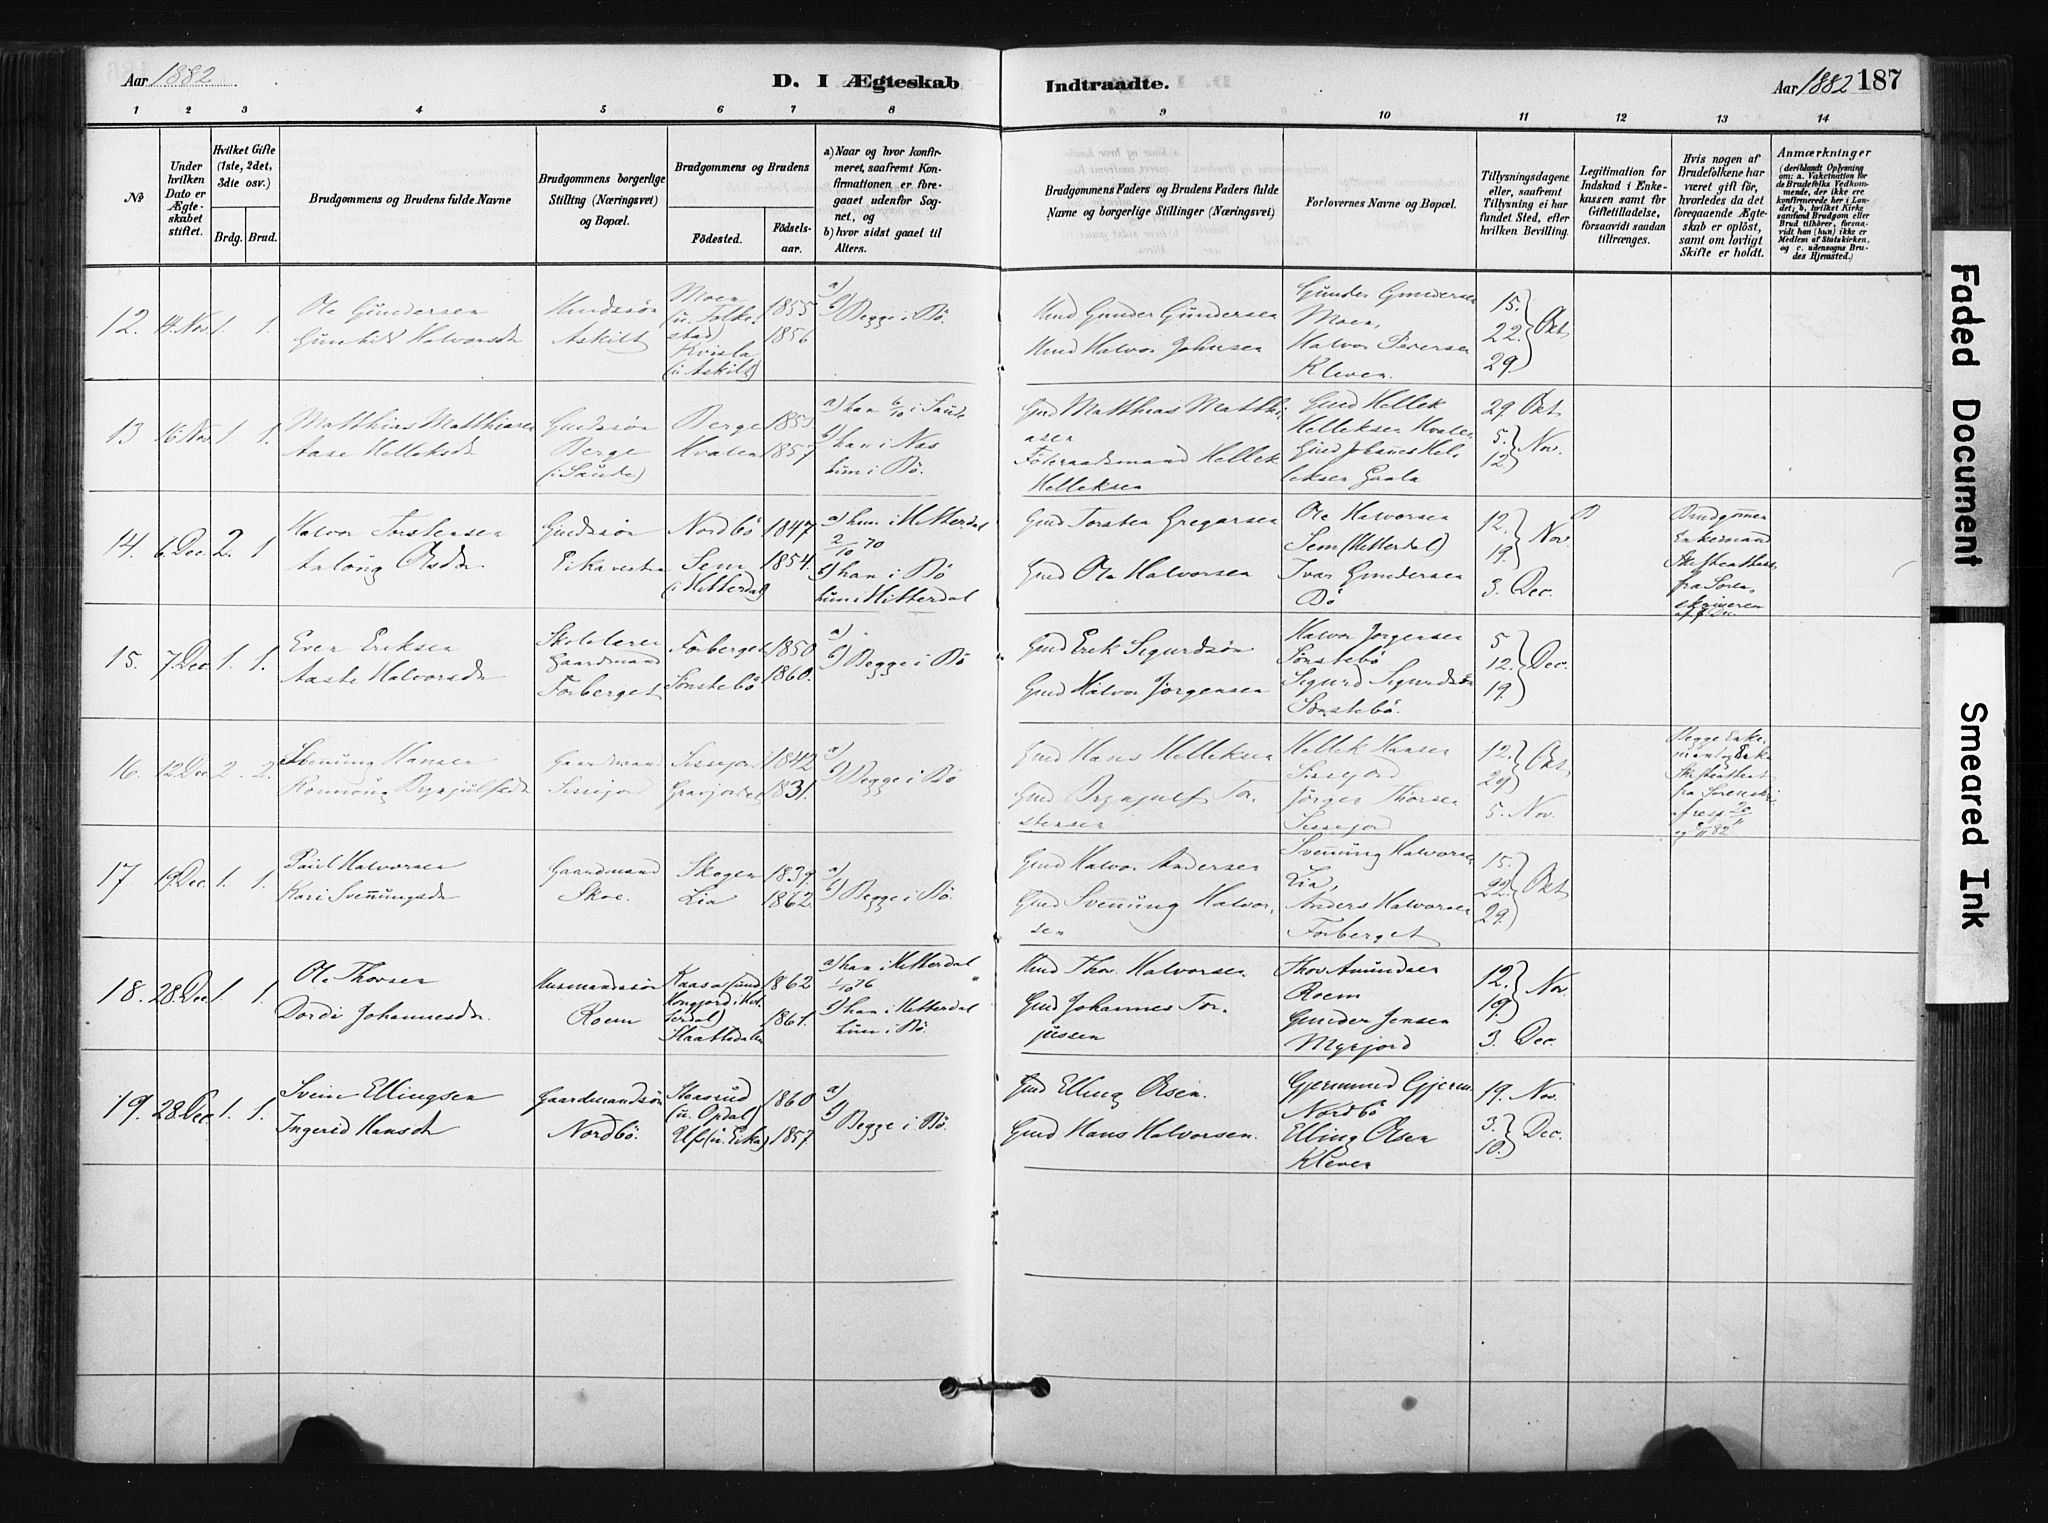 Aar 1882
D. I Ægteskab
Indtraadte.
Aar 1882
187
1 2 3 4 5 6 7 8 9 10 11 12 13 14
No
Under hvilken Dato er Ægteskabet stiftet.
Hvilket Gifte (1ste, 2det, 3die osv.)
Brdg.
Brud.
Brudgommens og Brudens fulde Navne
Brudgommens borgerlige Stilling (Næringsvei) og Bopæl.
Brudgommens og Brudens
Fødested.
Fødselsaar.
a) Naar og hvor konfirmeret, saafremt Konfirmationen er foregaaet udenfor Sognet, og
b) hvor sidst gaaet til Alters.
Brudgommens Faders og Brudens Faders fulde Navne og borgerlige Stillinger (Næringsvei)
Forlovernes Navne og Bopæl.
Tillysningsdagene eller, saafremt Tillysning ei har fundet Sted, efter hvilken Bevilling.
Legitimation for Indskud i Enkekassen samt for Giftetilladelse, forsaavidt saadan tiltrænges.
Hvis nogen af Brudefolkene har været gift før, hvorledes da det foregaaende Ægteskab er opløst, samt om lovligt Skifte er holdt.
Anmærkninger
12. 14. Nov. 1. 1.
Ole Gundersen
Gunhild Halvorsdr
Husmdssøn
Askilt
Moen
(u. Folke-
stad)
Kvisla
(u. Askilt)
1855
1856
a)
b) Begge i Bø.
Hmd Gunder Gundersen
Hmd Halvor Johnsen
Gunder Gundersen
Moen,
Halvor Pedersen
Kleven.
15.
22. Okt
29.
13 16 Nov. 1. 1.
Matthias Matthiasen
Aase Helleksdr
Gmdssøn
Berge
(i Saude)
Berge
Kvalen
1855
1857
a) han 6/10 i Saude
b) han i Næs
hun i Bø.
Gmd Matthias Matthi-
asen
Føderaadsmand Hellek
Helleksen
Gmd Hellek
Helleksen Hvalen
Gmd Johannes Hel-
leksen Gaala
29. Okt
5.
12. Nov.
14. 6. Dec. 2. 1
Halvor Torstensen
Aalaug Olsdr.
Gmdssøn
Eikavestra
Nordbø
Sem
(i Hitterdal)
1847
1854.
a) hun i Hitterdal
2/10 70
b) han i Bø
hun i Hitterdal
Gmd Torsten Gregarsen
Gmd Ole Halvorsen
Ole Halvorsen
Sem (Hitterdal)
Ivar Gundersen
Bø
12.
19. Nov.
3. Dec.
Brudgommen
Enkemand
Skifteattest
fra Soren-
skriveren
15. 7. Dec. 1. 1.
Even Eriksen
Aaste Halvorsdr
Skolelærer
Gaardmand
Forberget
Forberget
Sønstebø
1850
1860.
a)
b) Begge i Bø
Gmd Erik Sigurdsøn
Gmd Halvor Jørgensen
Halvor Jørgensen
Sønstebø
Sigurd Sigurdsen
Sønstebø.
5
12. Dec.
19.
16. 12 Dec. 2. 2.
Svenung Hansen
Rønnaug Brynjulfsdr
Gaardmand
Sissejord
Sissejord
Gravjordet
1842
1831.
a)
b) Begge i Bø
Gmd Hans Helleksen
Gmd Brynjulf Tor-
stensen
Hellek Hansen
Sissejord
Jørgen Thorsen
Sissejord
12.
29. Okt
5. Nov.
Begge Enke-
mand og Enke
Skifteattest
fra Sorenskri-
17. 19. Dec. 1. 1.
Paul Halvorsen
Kari Svennungsdr
Gaardmand
Skoe.
Skogen
Lia
1839.
1862
a)
b) Begge i Bø.
Gmd Halvor Andersen
Gmd Svennung Halvor-
sen
Svennung Halvorsen
Lia,
Anders Halvorsen
Forberget
15.
22. Okt
29.
18. 28. Dec. 1. 1.
Ole Thorsen
Dordi Johannesdr.
Husmandssøn
Roem
Kaasa (und
Kongjord i Hit-
terdal)
Slaattedalen
1862
1861.
a) han i Hitterdal
1/10 76
b) han i Hitterdal
hun i Bø.
Hmd Thor Halvorsen
Gmd Johannes Tor-
jussen
Thov Amundsen
Roem
Gunder Jensen
Myrjord
12.
19. Nov.
3. Dec.
19. 28. Dec. 1. 1.
Svein Ellingsen
Ingerid Hansdr
Gaardmandssøn
Nordbø.
Staarud
(u. Opdal)
Ulf (u. Eika)
1860
1857
a)
b)
Begge i Bø.
Gmd Elling Olsen.
Gmd Hans Halvorsen.
Gjermund Gjerm.
Nordbø
Elling Olsen
Kleven
19. Nov.
3.
10. Dec.
Faded Document
Smeared Ink